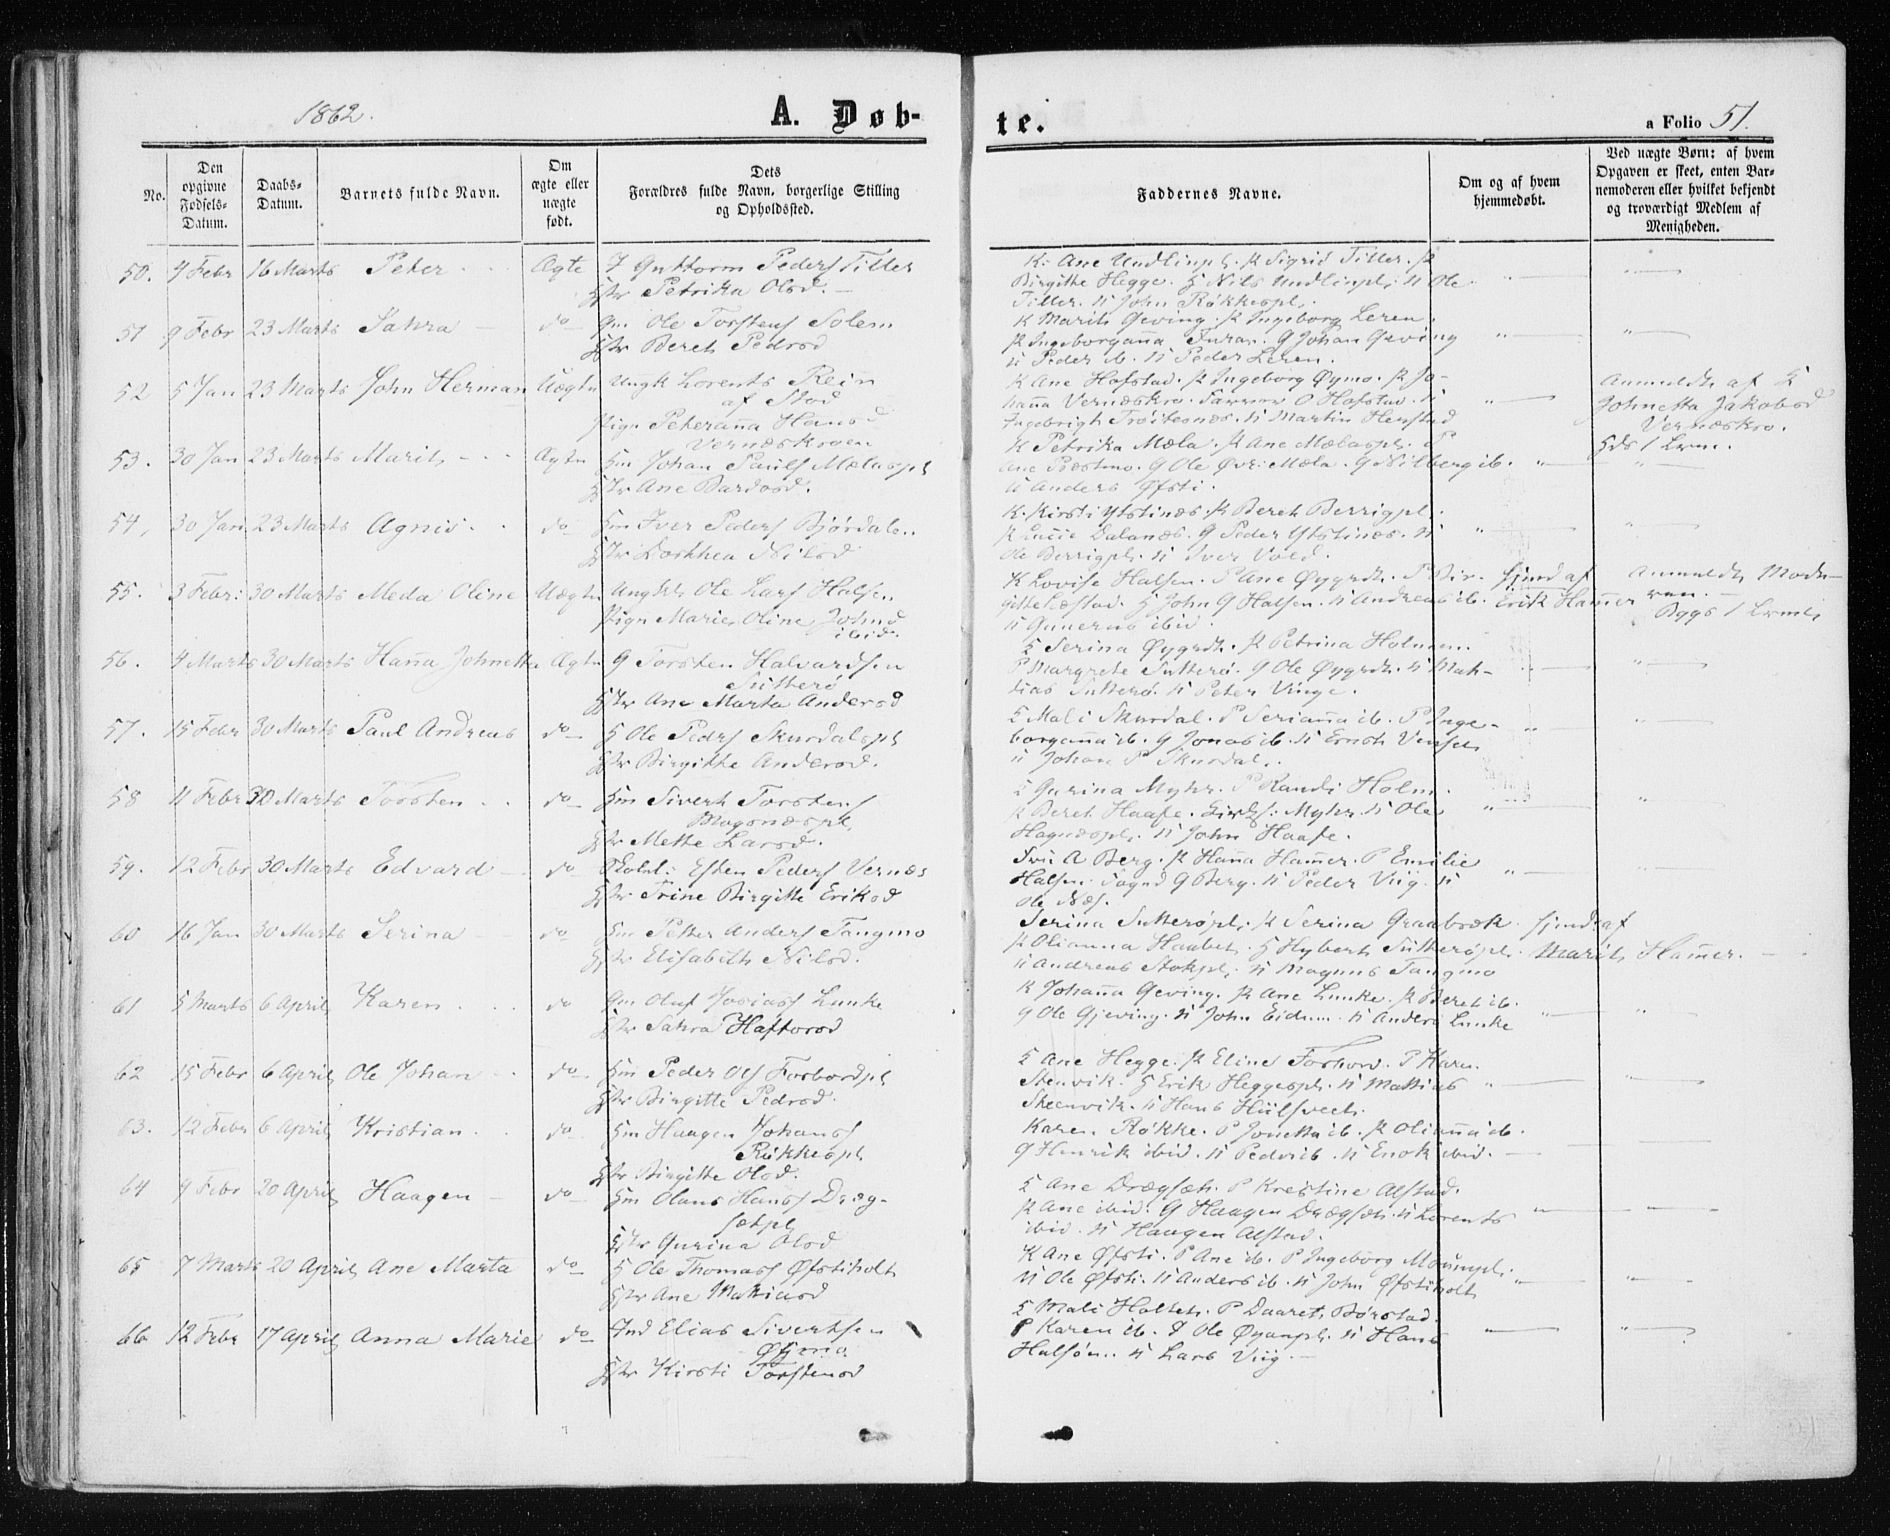 1862.
A. Døb-
te.
a Folio 51.
No.
Den
opgivne
Fødsels-
Datum.
Daabs-
Datum.
Barnets fulde Navn.
Om
ægte eller
uægte
født.
Dets
Forældres fulde Navn, borgerlige Stilling
og Opholdssted.
Faddernes Navne.
Om og af hvem
hjemmedøbt.
Ved uægte Børn: af hvem
Opgaven er skeet, enten Bar-
nemoderen eller hvilket bekjendt
og troværdigt Medlem af
Menigheden.
50. 4 Febr 16 Marts Peter Ægte Guttorm Peders Tiller
Petrika Olsd.
K. Ane Undlinpl. Sigrid Tiller.
Birgitte Hegge. Nils Undlinpl. Ole
Tiller. John Røkkespl.
51 9 Febr 23 Marts Sahra do Gm Ole Torstens Solem
Beret Pedrsd
K Marit Geving. Ingeborg Leren.
Ingeborganna Furan. G Johan Geving
Peder ib. Peder Leren.
52 5 Jan 23 Marts John Herman Uægte Ungk Lorents Rein
af Stod
Pige Peteranna Hansd
Vernæskroen
K Ane Hofstad. Ingeborg Øymo. Jo-
hanna Vernæskro. O Hofstad.
Ingebrigt Trøitesnæs. Martin Henstad
Anmeldt af
Johnetta Jakobsd
Vernæskro.
53. 30 Jan 23 Marts Marit Ægte Hm Johan Pauls Mælaspl
Ane Bardosd.
K Petrika Mæla. Ane Mælaspl. P
Ane Præstmo. G Ole Øvr: Mæla. G Nilberg ib.
Anders Øfsti.
54, 30 Jan 23 Marts Agnis do Hm Iver Peders Bjørdal
Dorthea Nilsd
K. Kirsti Ystines Beret Berrigpl.
Lucie Dalanæs. G Peder Ystines.
Ole Berrigpl. Iver Vold.
55. 3 Febr: 30 Marts Meda Oline Uægte Ungkl Ole Lars Halsen
Pige Marie Oline Johnsd
ibid.
K Lovise Halsen. P Ane Øygrdt. P Bir-
gitte Læstad. John G Halsen. Andreas ib.
Gunerus ibid
hjmd af
Erik Hammer
Anmeldt Mode-
ren.
56. 4 Marts 30 Marts Hanna Johnetta Ægte G Torsten Halvardsen
Sutterø
Ane Marta Andersd
Serina Øygrdt. Petrina Holmen.
P Margrete Sutterø. G Ole Øygrdt. Mat-
tias Sutterø. Peter Vinge.
57. 15 Febr 30 Marts Paul Andreas do Ole Peders Skurdalspl
Birgitte Andersd.
Mali Skurdal. P Serianna ib. P Inge-
borganna ib. G Jonas ib. Ernst
Johan P Skurdal.
58 11 Febr 30 Marts Torsten do Hm Sivert Torstens
Mogsnæspl
Mette Larsd.
Gurina Myhr. P Randi Holm.
Beret Haafe. Myhr. Ole
Hognæspl. John Haafe.
59. 12 Febr 30 Marts Edvard do Esten Peders Vernæs
Trine Birgitte Eriksd
A Berg. Hanna Hammer. P Emilie
Halsen. G Berg. Peder Viig.
Ole Næs.
60 16 Jan 30 Marts Serina do Hm Petter Anders Tangmo
Elisabeth Nilsd.
Serina Sutterøpl. Serina Graabræk.
Olianna Haabet. Hybert Sutterøpl.
Andreas Stokpl. Magnus Tangmo
hjmd: af
Marit Hammer.
61 5 Marts 6 April Karen do Gm Oluf Josiass Lunke
Sahra Haftorsd
K Johanna Geving. Ane Lunke. Beret ib.
G Ole Gjeving. John Eidum. Anders Lunke
62 15 Febr 6 April Ole Johan do Hm Peder Ols Forbordpl
Birgitte Pedrsd.
Ane Hegge. Eline Forbord. P Karen
Stenvik. Erik Heggespl. Mattias
Steenvik. Hans Hulsveet.
63. 12 Febr 6 April Kristian do Hm Haagen Johans
Røkkespl
Birgitte Olsd.
Karen Røkke. P Jonetta ib. Olianna ib.
G Henrik ibid. Peder ib. Enok ibid.
64 9 Febr 20 April Haagen do Hm Olaus Hans Dræg-
sætpl
Gurina Olsd
Ane Drægset. P Kristine Alstad.
Ane ibid. G Haagen Drægset. Lorents
ibid. Haagen Alstad.
65 7 Marts 20 April Ane Marta do Ole Thomass Øfstiholt
Ane Mattiasd
K Ane Øfsti. P Ane ib. P Ingeborg
Ole Øfsti. Anders ib. John Øfstiholt
66 12 Febr 17 April Anna Marie do Ind Elias Sivertsen
Kirsti Torstensd
Mali Holset. P Daaret Børstad.
P Karen ib. Ole Øyanpl. Hans
Halsøn. Lars Viig.